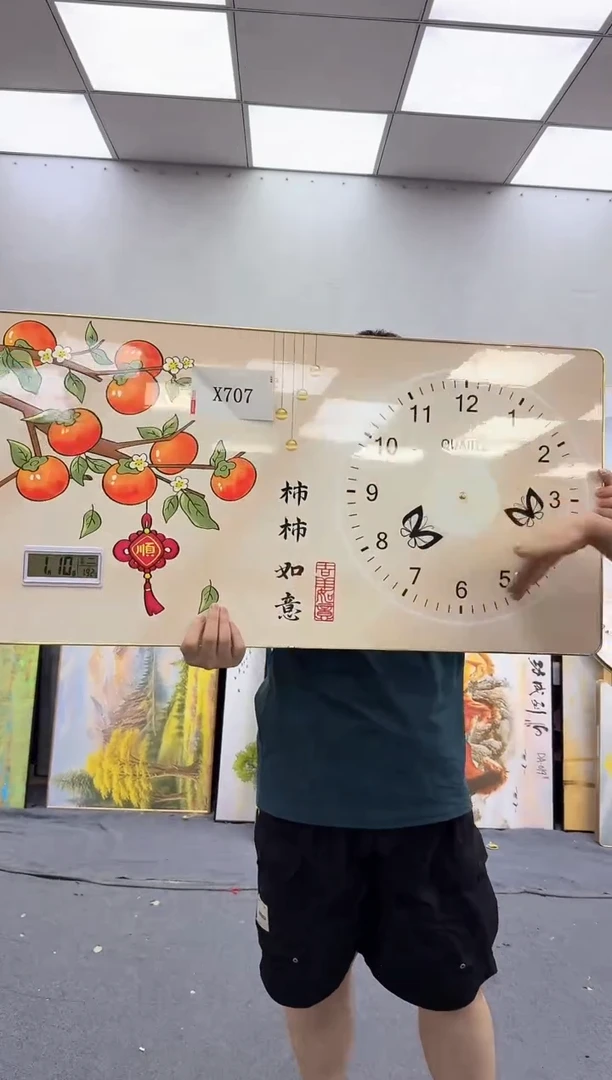 X707
順
1:10
柿
柿
如
意
12
1
2
3
5
6
7
8
9
10
11
QUARTZ